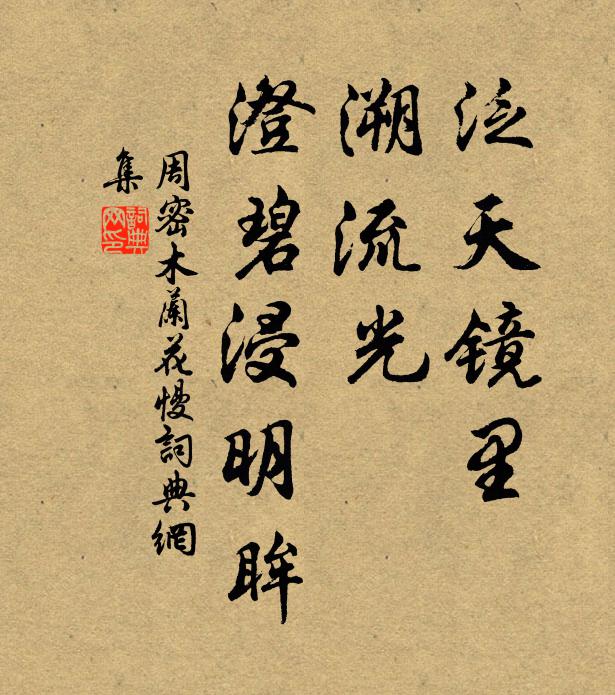 泛天镜里
溯流光
澄碧浸明眸
周密木蘭花慢詞典網
集
詞典网印